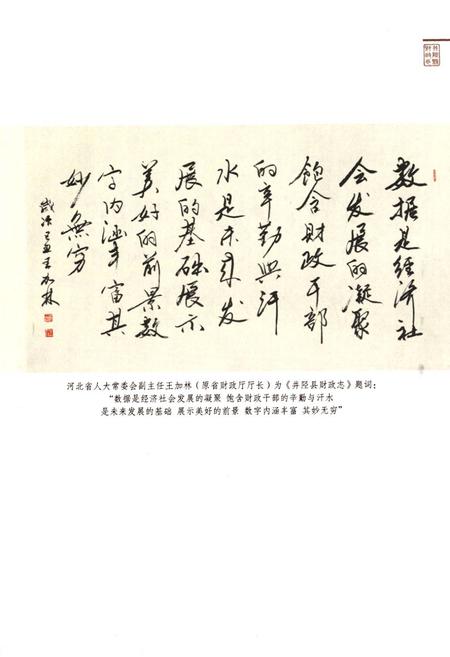 井陉县
财政志
数据是经济社
会发展的凝聚
饱含财政干部
的辛勤與汗
水是未来发
展的基础展示
美好的前景数
字内涵丰富其
妙無穷
歲次己丑王加林
河北省人大常委会副主任王加林（原省财政厅厅长）为《井陉县财政志》题词：
“数据是经济社会发展的凝聚 饱含财政干部的辛勤与汗水
是未来发展的基础 展示美好的前景 数字内涵丰富 其妙无穷”